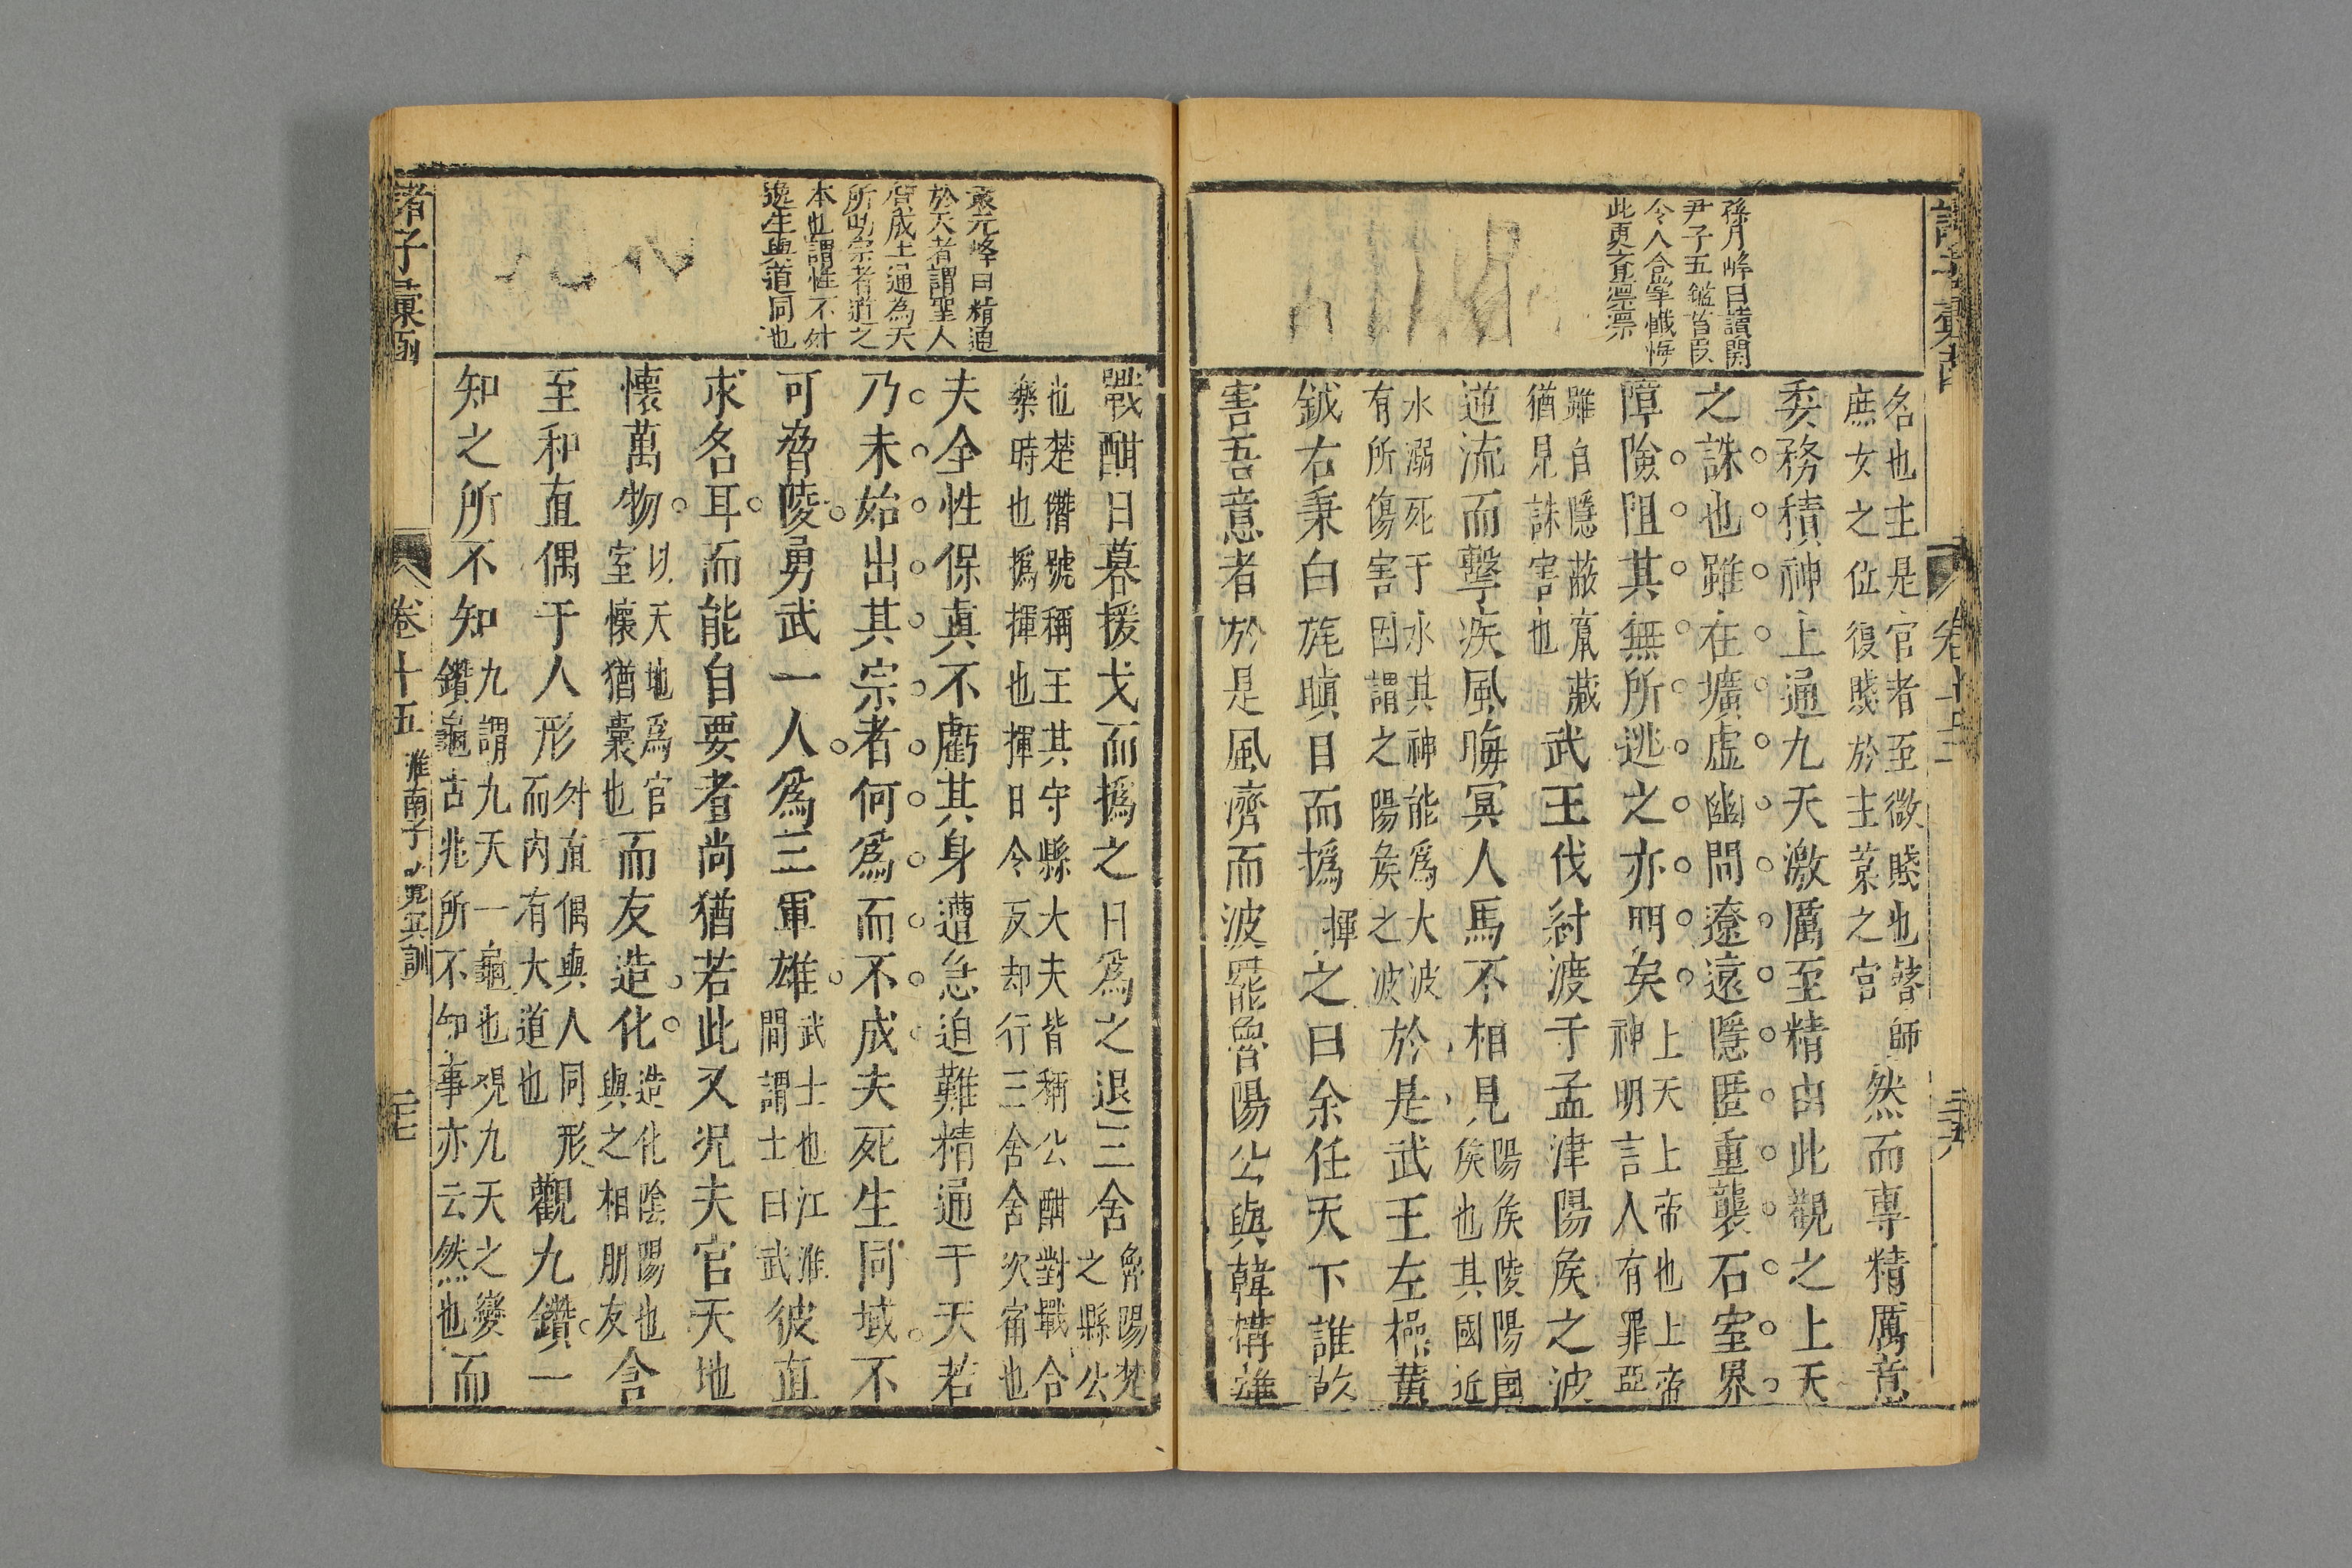 孫月峰曰讀開
尹子五鑑首段
令人合掌懺悔
此更奩凛凛
名也主是官者至微賤也瞽師
庶女之位復賤於主菜之官
然而專精厲意
委務積神上通九天激厲至精由此觀之上天
之誅也雖在壙虛幽間遼遠隱匿重襲石室界
障險阻其無所逃之亦明矣
上天上帝也上帝
神明言人有罪惡
雖自隱蔽竄藏
猶見誅害也
武王伐紂渡于孟津陽矦之波
逆流而擊疾風晦冥人馬不相見
陽矦陵陽國
矦也其國近
水溺死于水其神能爲大波
有所傷害因謂之陽矦之波
於是武王左操黃
鉞右秉白旄瞋目而撝
揮
之曰余任天下誰敢
害吾意者於是風濟而波罷魯陽公與韓搆難
諸子彙函
卷十五
淮南子
覽冥訓
袁元峰曰精通
於天者謂聖人
質成上通為天
所助宗者道之
本也謂性不外
逸生與道同也
戰酣日暮援戈而撝之日爲之退三舍
魯陽楚
之縣公
也楚僭號稱王其守縣大夫皆稱公酣對戰合
樂時也撝揮也揮日令反却行三舍舍次宿也
夫全性保真不虧其身遭急迫難精通于天若
乃未始出其宗者何爲而不成夫死生同域不
可脅陵勇武一人爲三軍雄
武士也江淮
間謂士曰武
彼直
求名耳而能自要者尚猶若此又况夫官天地
懷萬物
以天地爲官
室懷猶囊也
而友造化
造化陰陽也
與之相朋友
含
至和直偶于人形
外直偶與人同形
而内有大道也
觀九鑽一
知之所不知
九謂九天一龜也覌九天之變
鑽龜占兆所不知事亦云然也
而